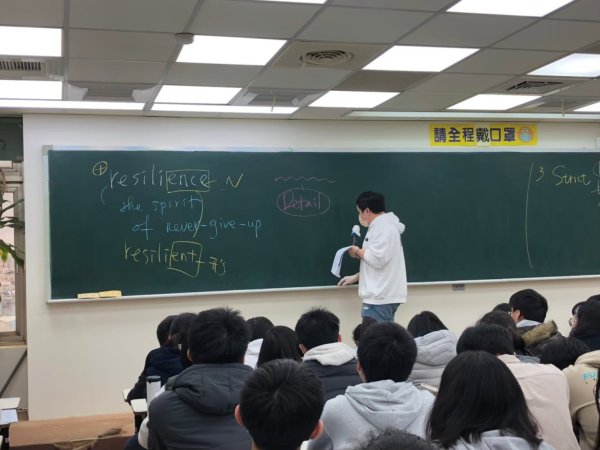 請全程戴口罩
⊕ resilience. N
the spirit
of never-give-up
resilient
Detail
3 Strict